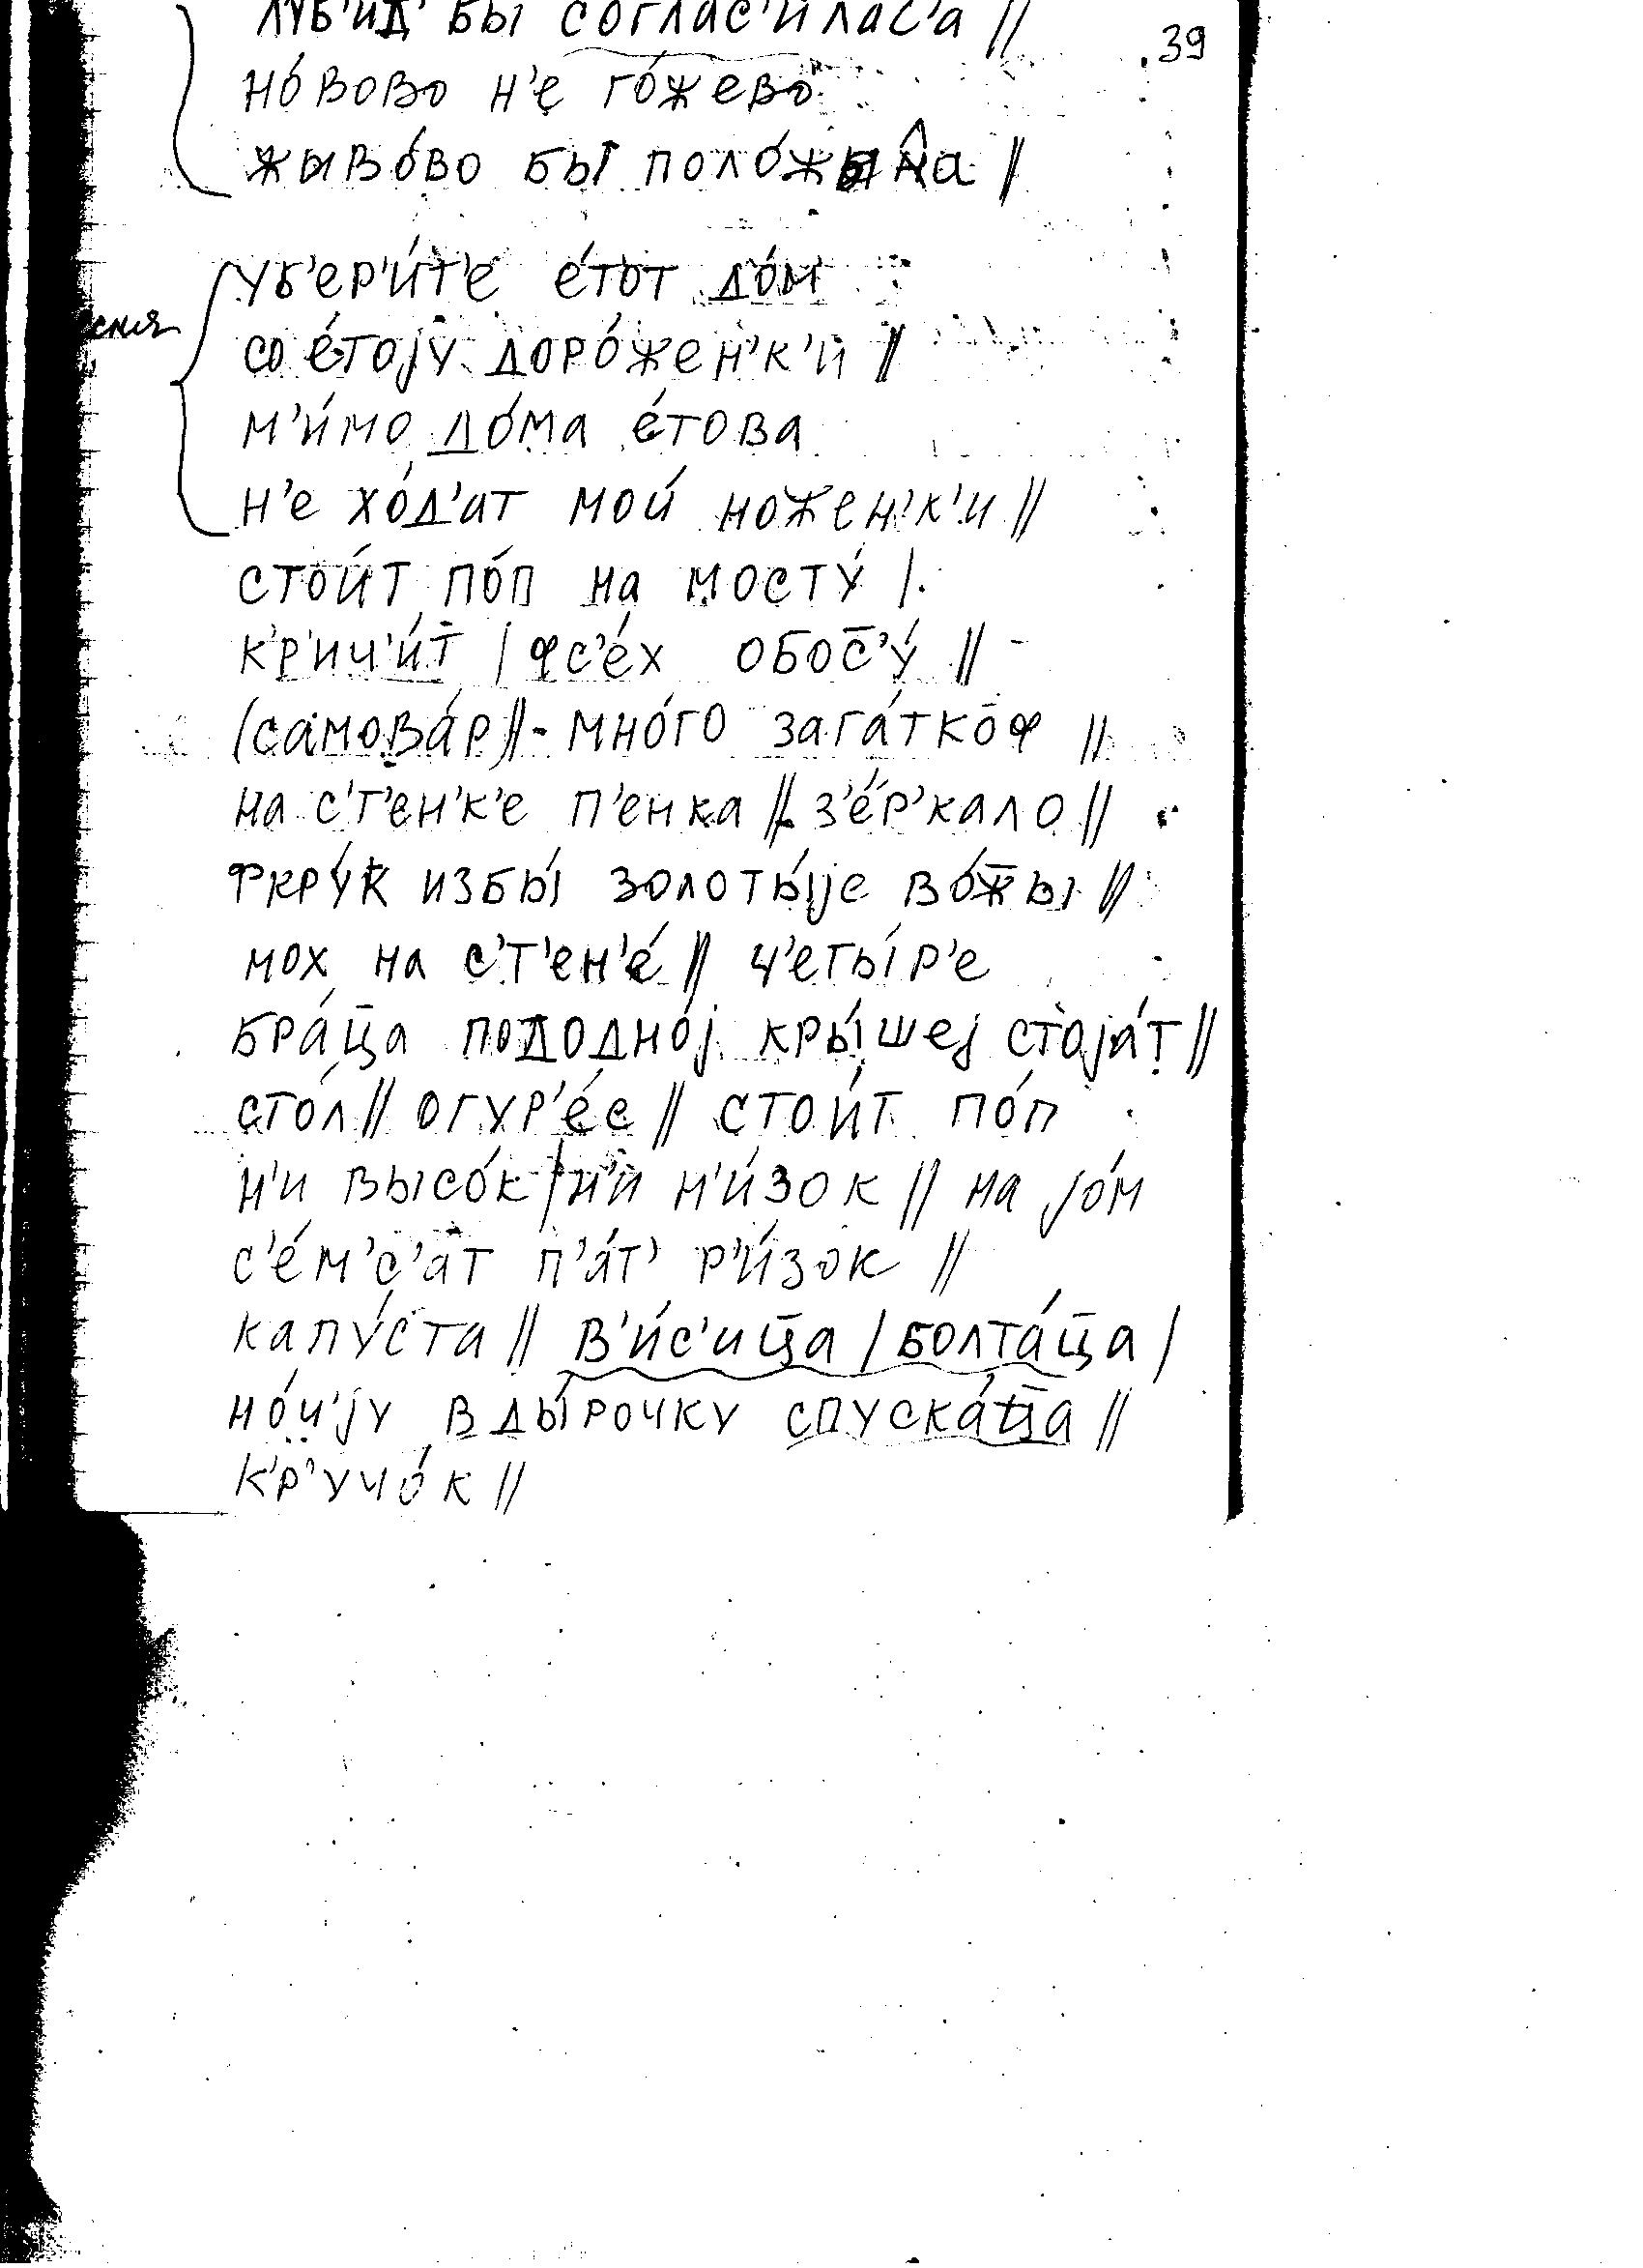 бы соглас'илас'а //
39
но́вово н'е го́жево
жыво́во бы поло́жы ла //
уб'ер'и́т'е е́тот до́м
со е́тоjу доро́жен'к'и //
м'и́мо до́ма е́това
н'е хо́д'ат мои́ ножен'к'и //
стои́т по́п на мосту́ /
к'р'ич'и́т / фс'е́х обос̄'у́ //
(самова́р) // - мно́го зага́ткоф //
на с'т'ен'к'е п'енка // з'е́р'кало //
фкру́к избы́ золоты́jе во́ж̄ы //
мох на с'т'ен'е́ // ч'еты́р'е
бра́ц̄а пододно́j кры́шеj стоjа́т //
сто́л // огур'е́с // стои́т по́п
н'и высо́к / н'и н'и́зок // на jо́м
с'е́м'с'ат п'а́т' р'и́зок //
капу́ста // в'и́с'иц̄а / болта́ц̄а /
но́ч'jу в ды́рочку спуска́ц̄а //
к'р'учо́к //